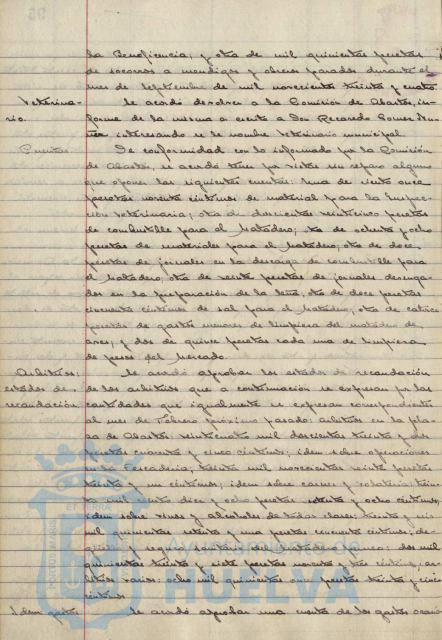 la Beneficencia; y otra de mil quinientas pesetas
de socorros a mendigos y obreros parados durante el
mes de Septiembre de mil novecientos treinta y cuatro
Veterina-
rio.
Se acordó devolver a la Comisión de Abastos, in-
forme de la misma a escrito a Don Recaredo Gomez
interesando se le nombre Veterinario municipal
Cuentas.
De conformidad con lo informado por la Comisión
de Abastos, se acordó tener por vistas sin reparo alguno
que oponer las siguientes cuentas: Una de ciento once
pesetas noventa céntimos de material para la Inspec-
ción Veterinaria; otra de doscientas veinticinco pesetas
de combustible para el Matadero; otra de ochenta y ocho
pesetas de materiales para el Matadero; otra de doce
pesetas de jornales en la descarga de combustible para
el Matadero; otra de veinte pesetas de jornales devenga-
dos en la preparación de la leña; otra de doce pesetas
cincuenta céntimos de sal para el Matadero; otra de catorce
pesetas de gastos menores de limpieza del matadero de
aves; y dos de quince pesetas cada una de limpieza
de pesos del Mercado.
Arbitrios;
estados de
recaudación
Se acordó aprobar los estados de recaudación
de los arbitrios que a continuación se expresan por las
cantidades que igualmente se expresan correspondientes
al mes de Febrero próximo pasado: arbitrios en la pla-
za de Abastos veinticuatro mil doscientas treinta y dos
pesetas cuarenta y cinco céntimos; idem sobre operaciones
en la Pescadería; treinta mil novecientas veinte pesetas
treinta y un céntimos; idem sobre carnes y volatería: trein-
ta mil ciento diez y ocho pesetas y ocho céntimos;
idem sobre vinos y alcoholes de todas clases: treinta y
mil quinientas setenta y una pesetas cincuenta céntimos; de-
güello y seguro sanitario del : dos mil
quinientas treinta y siete pesetas noventa y tres céntimos; ar-
bitrios varios: ocho mil quinientas once pesetas treinta y cinco
céntimos
Idem gastos
Se acordó aprobar una cuenta de los gastos ocasio
Ayuntamiento de
HUELVA